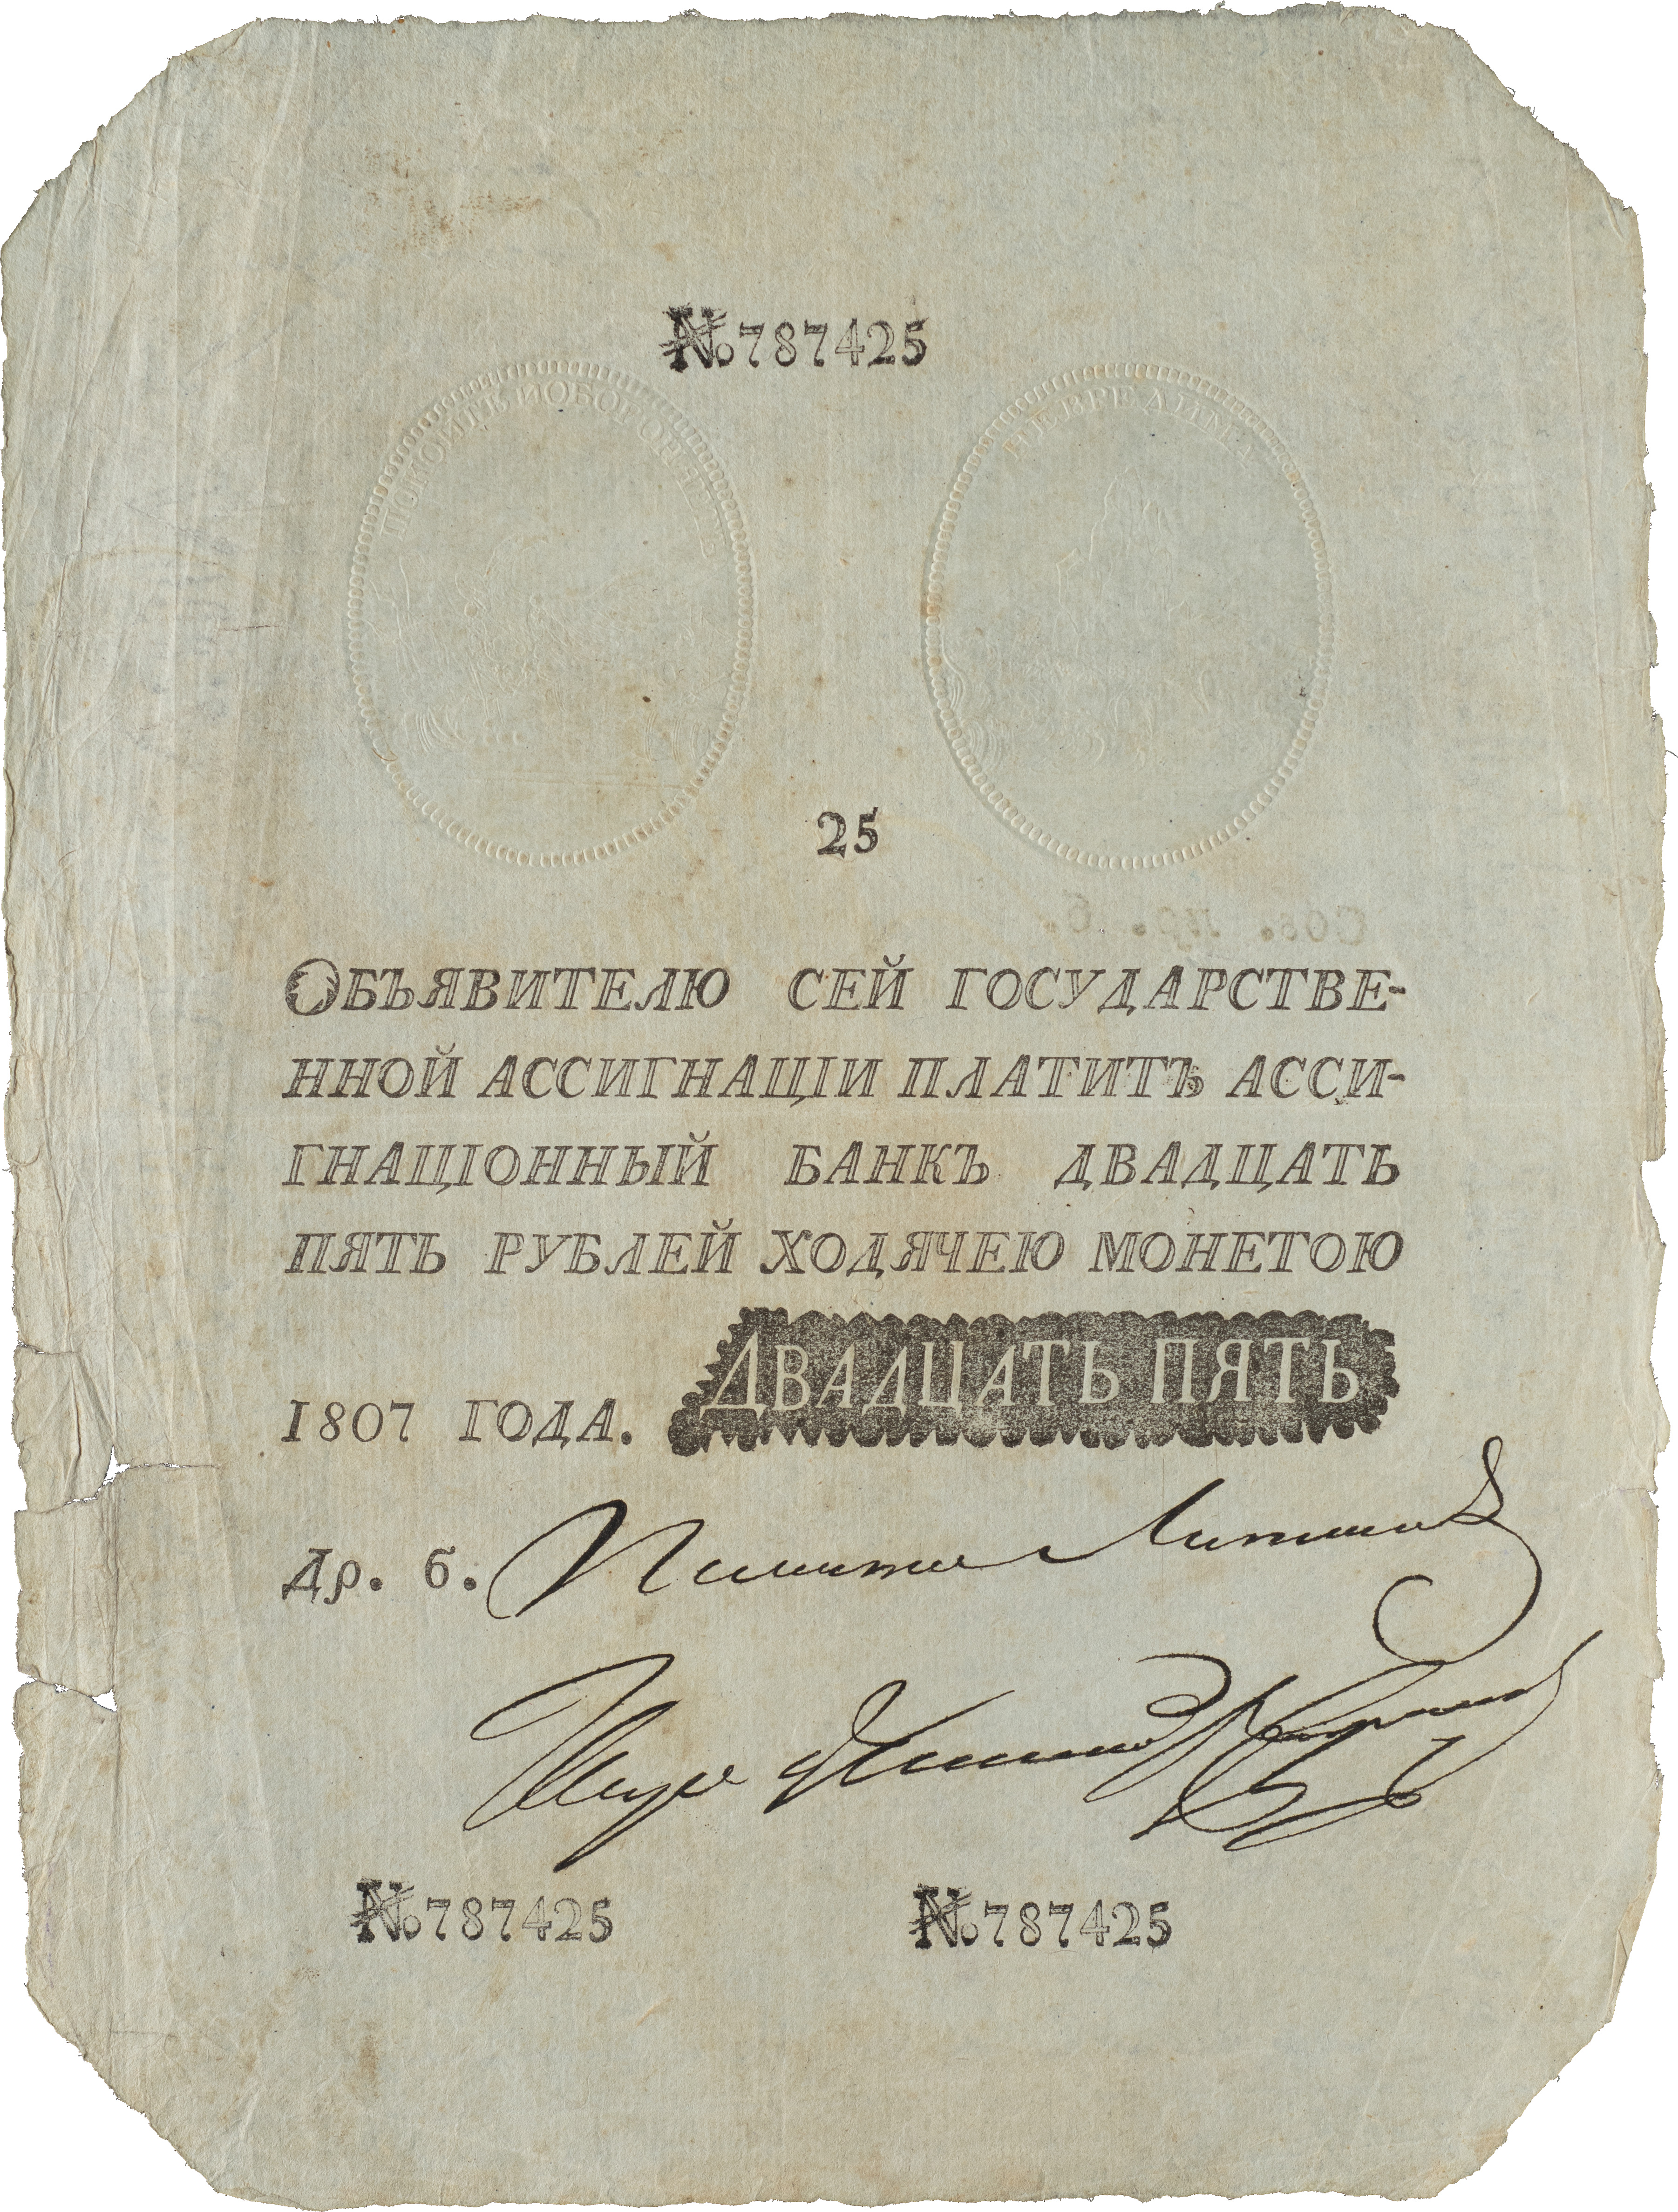 №787425
ПОКОИТЪ И ОБОРОНЯЕТЪ
НЕВРЕДИМА
25
ОБЪЯВИТЕЛЮ СЕЙ ГОСУДАРСТВЕ-
ННОЙ АССИГНАЦІИ ПЛАТИТЪ АССИ-
ГНАЦІОННЫЙ БАНКЪ ДВАДЦАТЬ
ПЯТЬ РУБЛЕЙ ХОДЯЧЕЮ МОНЕТОЮ
1807 ГОДА. ДВАДЦАТЬ ПЯТЬ
Др. б.
№787425 №787425